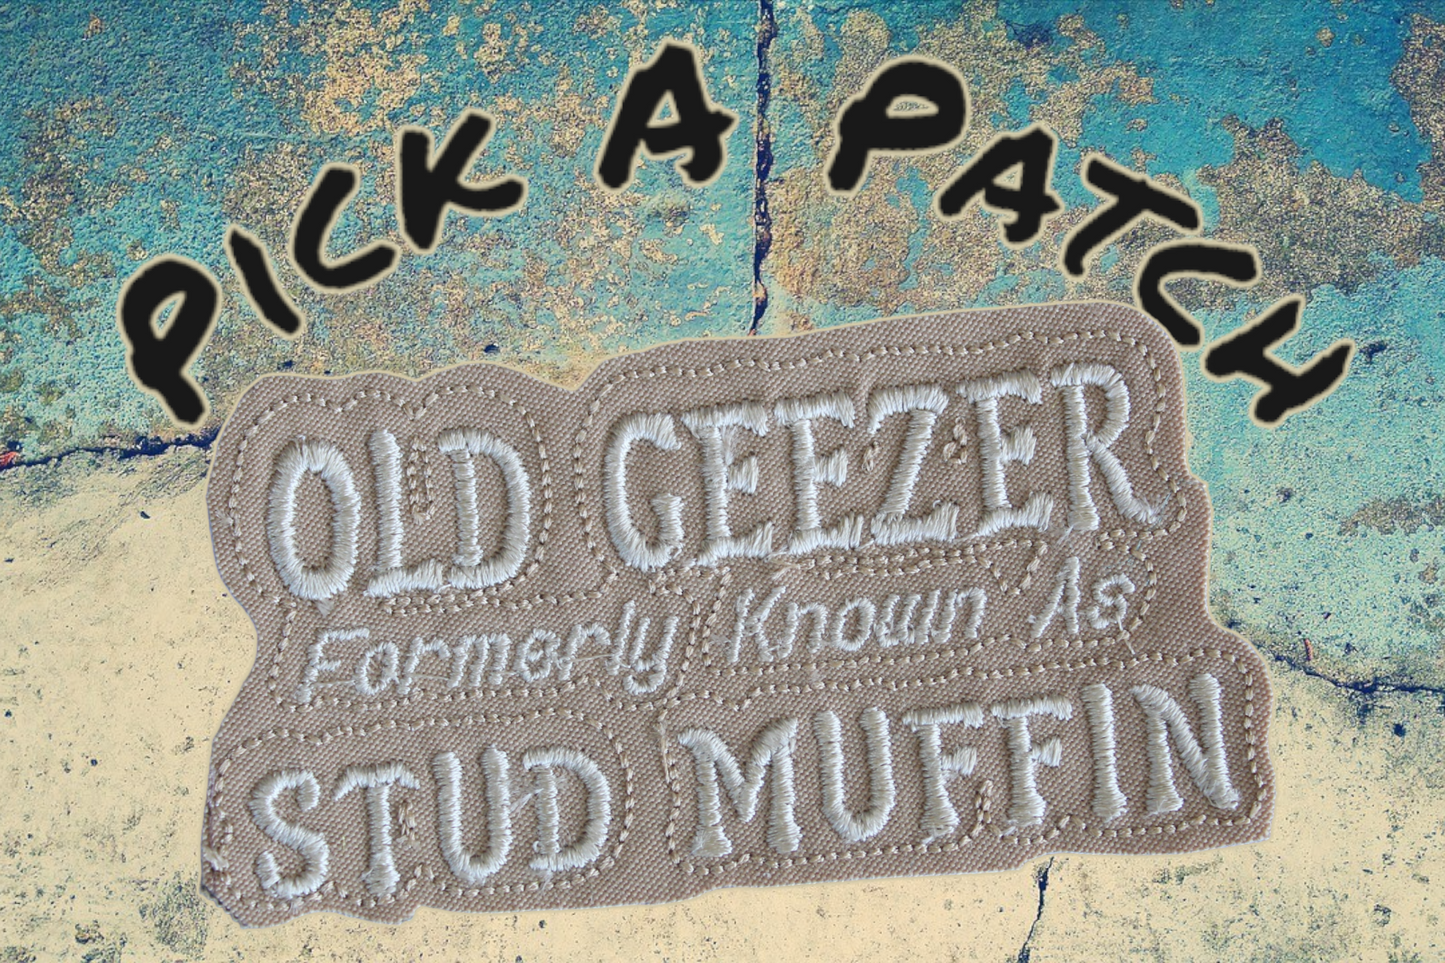 PICK A PATCH
OLD GEEZER
Formerly Known As
STUD MUFFIN